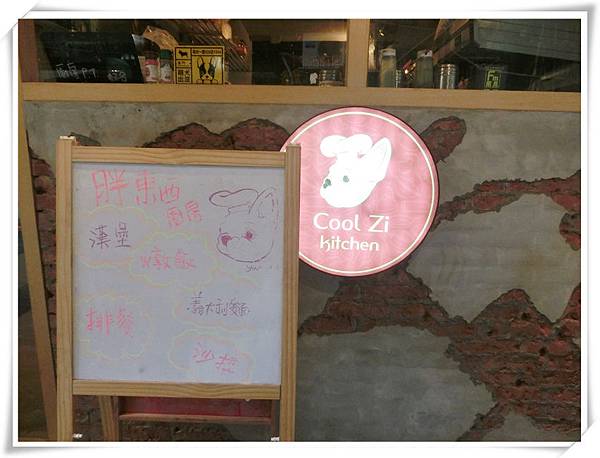 胖東西
廚房
漢堡
燉飯
排餐
義大利麵
沙拉
Cool Zi
kitchen